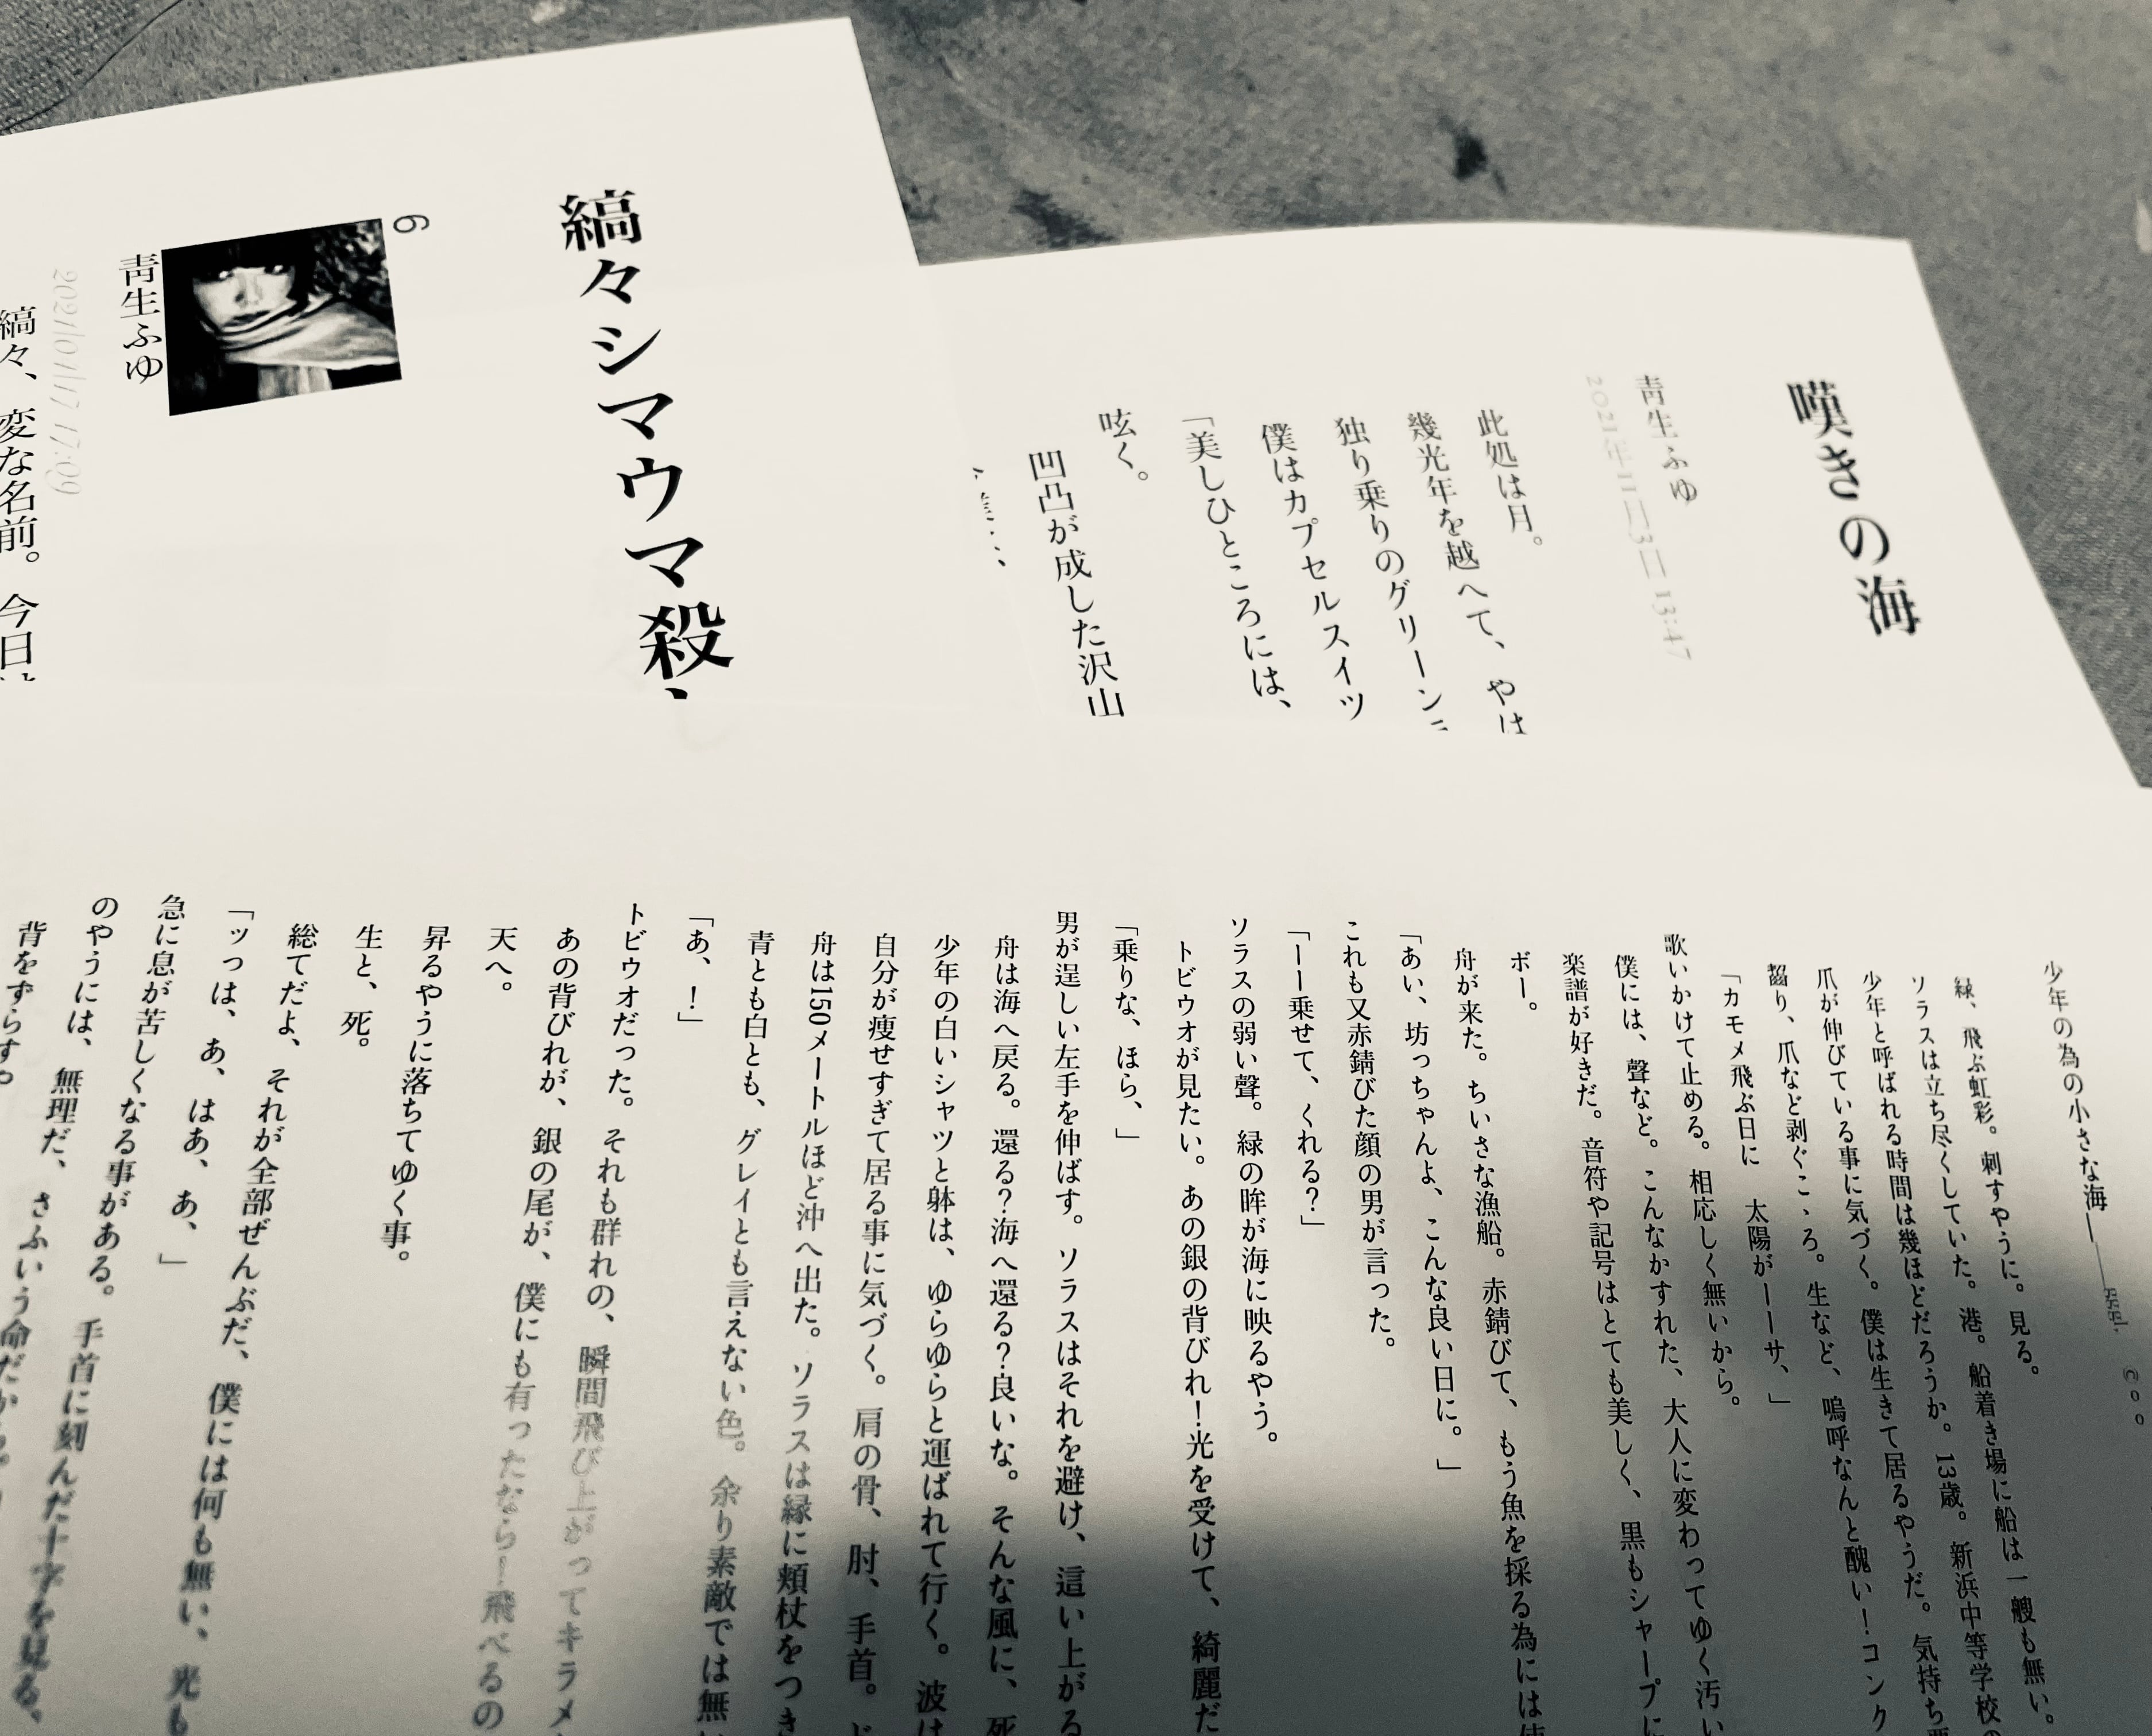 嘆きの海
青生ふゆ
2021年11月3日 13:47
此処は月。
幾光年を越へて、やは
独り乗りのグリーン
僕はカプセルスイツ
「美しひところには、
呟く。
凹凸が成した沢山
縞々シマウマ殺、
6
青生ふゆ
2021/01/17 17:09
縞々、変な名前。今日は
少年の為の小さな海――
緑、飛ぶ虹彩。刺すやうに。見る。
ソラスは立ち尽くしていた。港。船着き場に船は一艘も無い。
少年と呼ばれる時間は幾ほどだろうか。13歳。新浜中等学校の
爪が伸びている事に気づく。僕は生きて居るやうだ。気持ち悪
齧り、爪など剥ぐこゝろ。生など、嗚呼なんと醜い！コンク
「カモメ飛ぶ日に　太陽がーーサ、」
歌いかけて止める。相応しく無いから。
僕には、聲など。こんなかすれた、大人に変わってゆく汚い
楽譜が好きだ。音符や記号はとても美しく、黒もシャープに
ボー。
舟が来た。ちいさな漁船。赤錆びて、もう魚を採る為には使
「あい、坊っちゃんよ、こんな良い日に。」
これも又赤錆びた顔の男が言った。
「ーー乗せて、くれる？」
ソラスの弱い聲。緑の眸が海に映るやう。
トビウオが見たい。あの銀の背びれ！光を受けて、綺麗だ
「乗りな、ほら、」
男が逞しい左手を伸ばす。ソラスはそれを避け、這い上がる
舟は海へ戻る。還る？海へ還る？良いな。そんな風に、死
少年の白いシャツと躰は、ゆらゆらと運ばれて行く。波は
自分が痩せすぎて居る事に気づく。肩の骨、肘、手首。ど
舟は150メートルほど沖へ出た。ソラスは縁に頬杖をつき
青とも白とも、グレイとも言えない色。余り素敵では無い
「あ、！」
トビウオだった。それも群れの、瞬間飛び上がってキラメ
あの背びれが、銀の尾が、僕にも有ったなら！飛べるの
天へ。
昇るやうに落ちてゆく事。
生と、死。
総てだよ、それが全部ぜんぶだ、僕には何も無い、光も
「ッっは、あ、はあ、あ、」
急に息が苦しくなる事がある。
のやうには、無理だ、手首に刻んだ十字を見る、
背をずらすや　さふいう命だから。